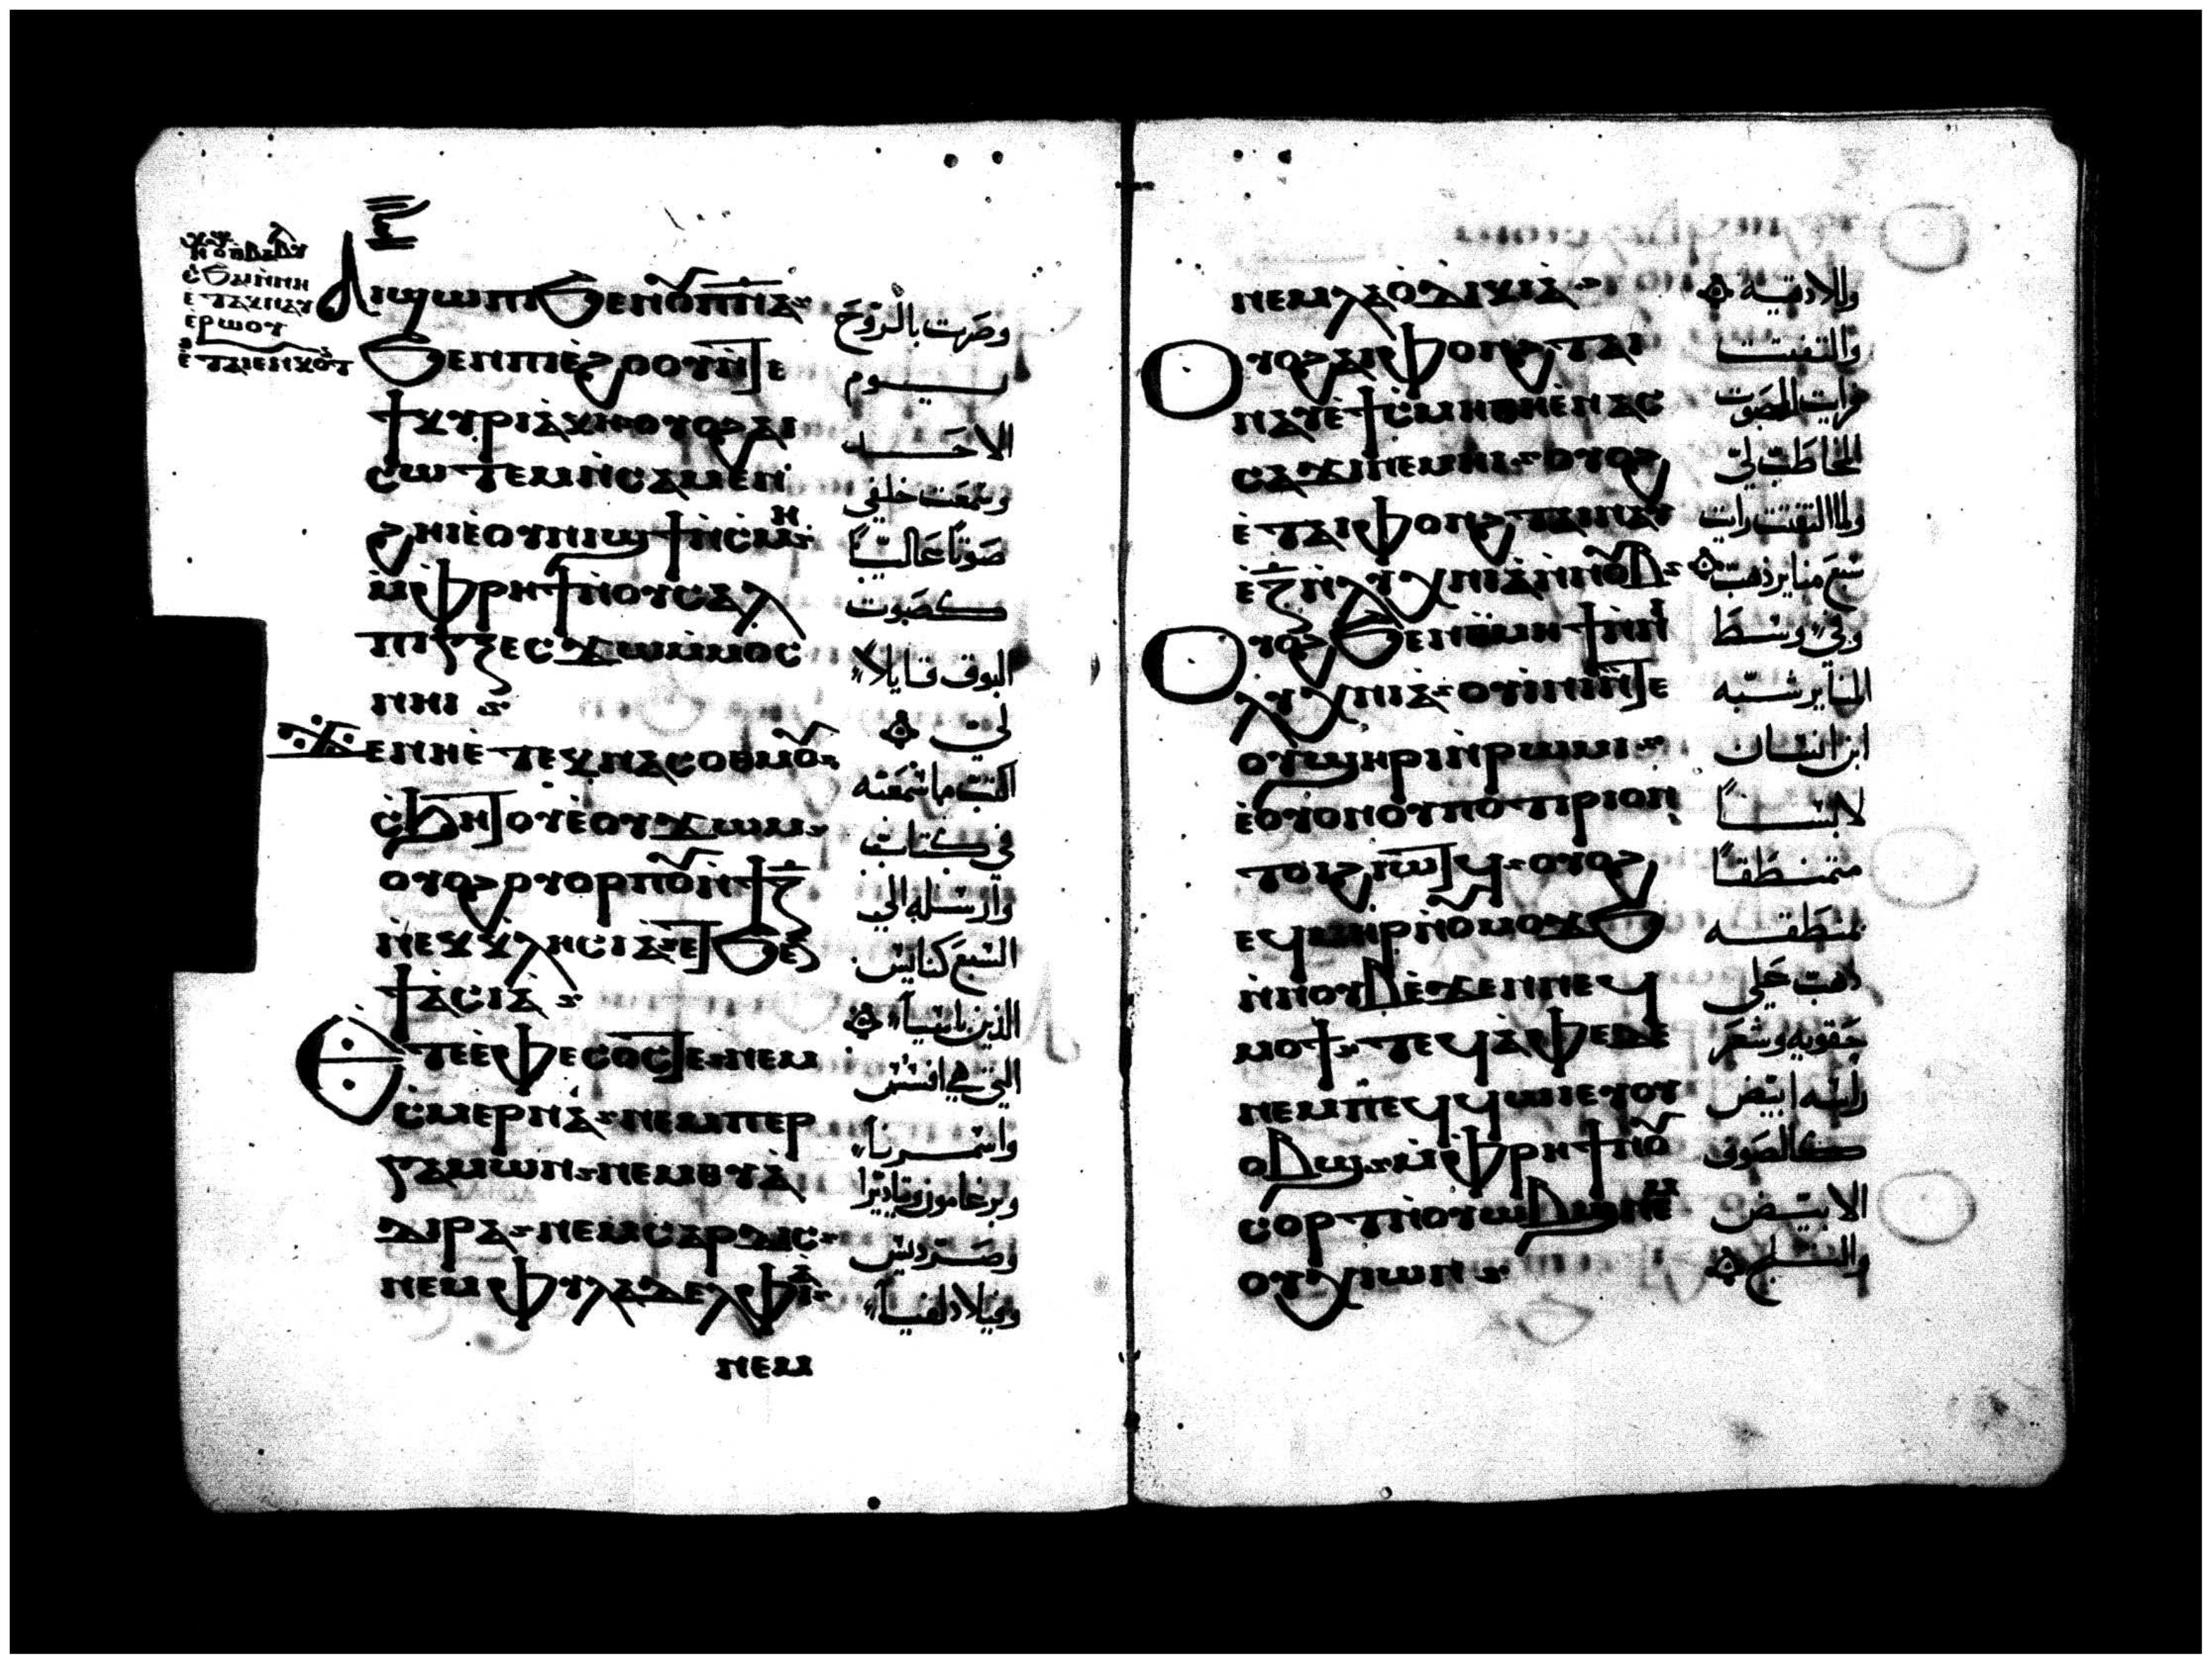 ⲁⲓϣⲱⲡⲓ ϧⲉⲛ ⲟⲩⲡⲛⲁ
ϧⲉⲛ ⲡⲓⲉϩⲟⲟⲩ ⲛⲧⲉ
ϯⲕⲩⲣⲓⲁⲕⲏ ⲟⲩⲟϩ ⲁⲓ
ⲥⲱⲧⲉⲙ ⲛⲥⲁⲙⲉⲛ
ϩⲏⲓ ⲉⲟⲩⲛⲓϣϯ ⲛⲥⲙⲏ
ⲙⲫⲣⲏϯ ⲛⲟⲩⲥⲁⲗ
ⲡⲓⲅⲝ ⲉⲥϫⲱ ⲙⲙⲟⲥ
ⲛⲏⲓ
ϫⲉ ⲛⲏ ⲉⲧⲉⲕⲛⲁⲥⲟⲑⲙⲟⲩ
ⲥϧⲏⲧⲟⲩ ⲉⲟⲩϫⲱⲙ
ⲟⲩⲟϩ ⲟⲩⲟⲣⲡⲟⲩ ⲛϯⲍ
ⲛⲉⲕⲕⲗⲏⲥⲓⲁ ⲉⲧϧⲉⲛ
ϯⲁⲥⲓⲁ
ⲉⲧⲉ ⲉⲫⲉⲥⲟⲥ ⲧⲉ ⲛⲉⲙ
ⲥⲙⲉⲣⲛⲁ ⲛⲉⲙ ⲡⲉⲣ
ⲅⲁⲙⲱⲛ ⲛⲉⲙ ⲑⲩⲁ
ⲇⲓⲣⲁ ⲛⲉⲙ ⲥⲁⲣⲇⲓⲥ
ⲛⲉⲙ ⲫⲩⲗⲁⲇⲉⲗⲫⲓⲁ
ⲛⲉⲙ
وصرت بالروح
يوم
الاحد
وسمعت خلفي
صوتا عاليا
كصوت
البوق قايلا
لي
اكتب ما سمعته
في كتاب
وارسله الي
السبع كنايس
الذين باسيا
التي هي افسس
واسمرنا
وبرغامون وتياديرا
وصرديس
وفيلادلفيا
ⲛⲉⲙ ⲗⲁⲟⲇⲓⲕⲓⲁ
ⲟⲩⲟϩ ⲁⲓⲫⲟⲛϩⲧ ⲁⲓ
ⲛⲁⲩ ⲉϯⲥⲙⲏ ⲑⲏ ⲉⲛⲁⲥ
ⲥⲁϫⲓ ⲛⲉⲙⲏⲓ ⲟⲩⲟϩ
ⲉⲧⲁⲓⲫⲟⲛϩⲧ ⲁⲓⲛⲁⲩ
ⲉⲍ ⲛⲗⲩⲭⲛⲓⲁ ⲛⲛⲟⲩⲃ
ⲟⲩⲟϩ ϧⲉⲛ ⲑⲙⲏϯ ⲛⲛⲓ
ⲗⲩⲭⲛⲓⲁ ⲟⲩⲓⲛⲓ ⲛⲧⲉ
ⲟⲩϣⲏⲣⲓ ⲛⲣⲱⲙⲓ
ⲉⲟⲩⲟⲛ ⲟⲩⲡⲟⲧⲏⲣⲓⲟⲛ
ⲧⲟⲓ ϩⲓⲱⲧϥ ⲟⲩⲟϩ
ⲉϥⲙⲏⲣ ⲛⲟⲩⲙⲟϫϧ
ⲛⲛⲟⲩⲃ ⲉϫⲉⲛ ⲛⲉϥ
ⲙⲟϯ ⲧⲉϥⲁⲫⲉ ⲇⲉ
ⲛⲉⲙ ⲡⲉϥϥⲱⲓ ⲉⲧⲟⲩ
ⲟⲃϣ ⲙⲫⲣⲏϯ ⲛⲟⲩ
ⲥⲟⲣⲧ ⲛⲟⲩⲱⲃϣ ⲛⲉⲙ
ⲟⲩⲭⲓⲱⲛ
واللادقيه
والتفت
فرايت الصوت
المخاطب لي
ولما التفتت رايت
سبع مناير ذهب
وفي وسط
المناير شبه
ابن انسان
لابسا
متمنطقا
بمنطقه
ذهب علي
حقويه وشعر
راسه ابيض
كالصوف
الابيض
والثلج